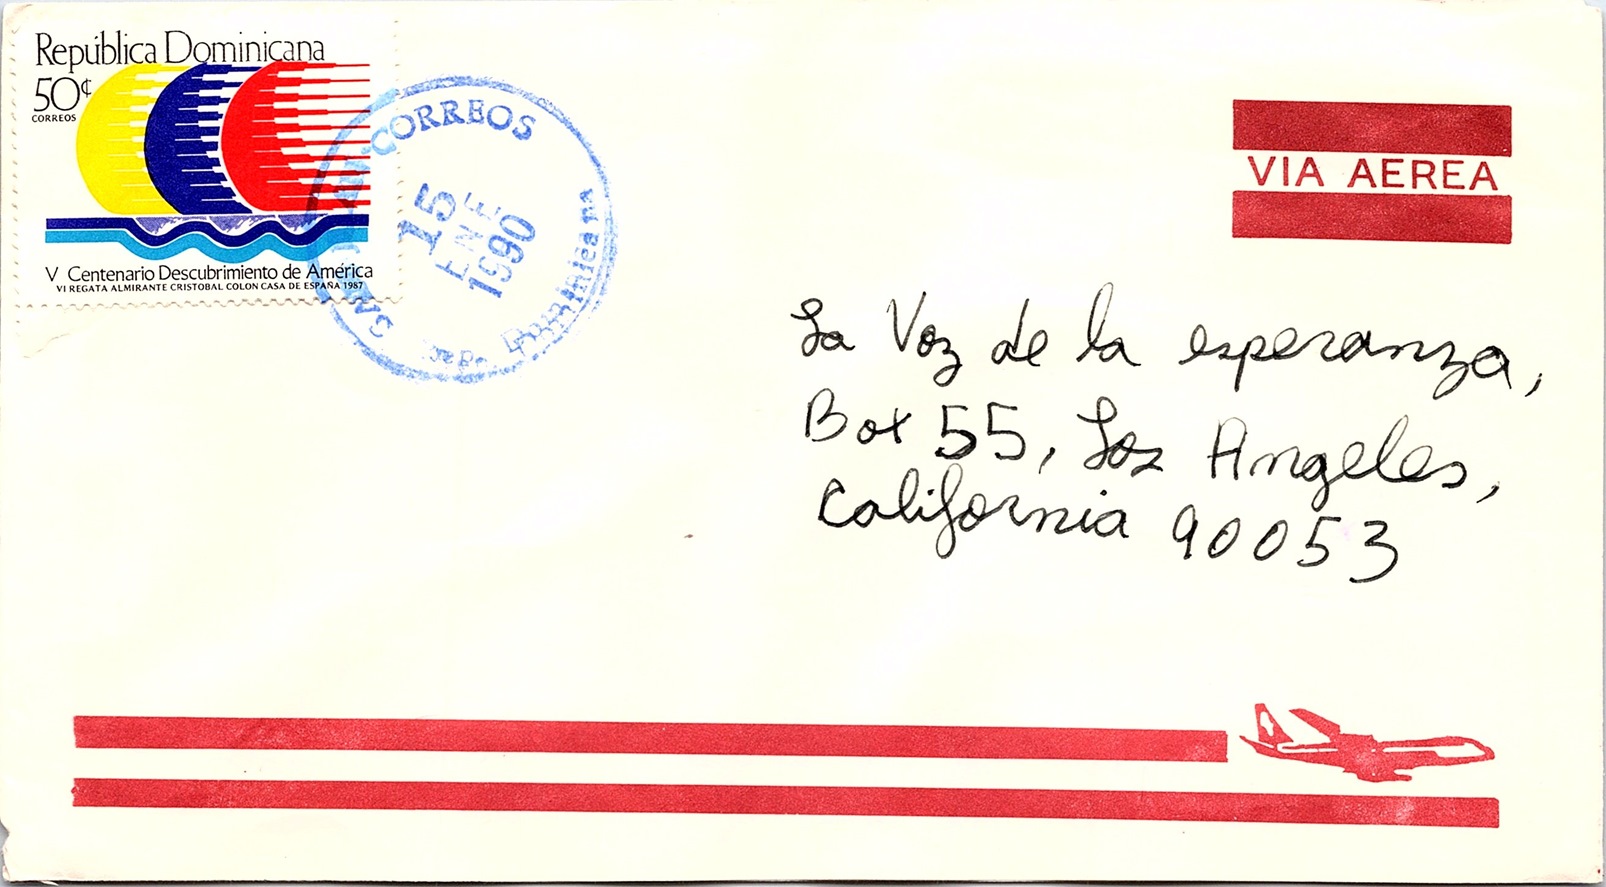 República Dominicana
50¢
CORREOS
V Centenario Descubrimiento de América
VI REGATA ALMIRANTE CRISTOBAL COLON CASA DE ESPAÑA 1987
CORREOS
15
ENE
1990
Dominicana
VIA AEREA
La Voz de la esperanza,
Box 55, Los Angeles,
California 90053